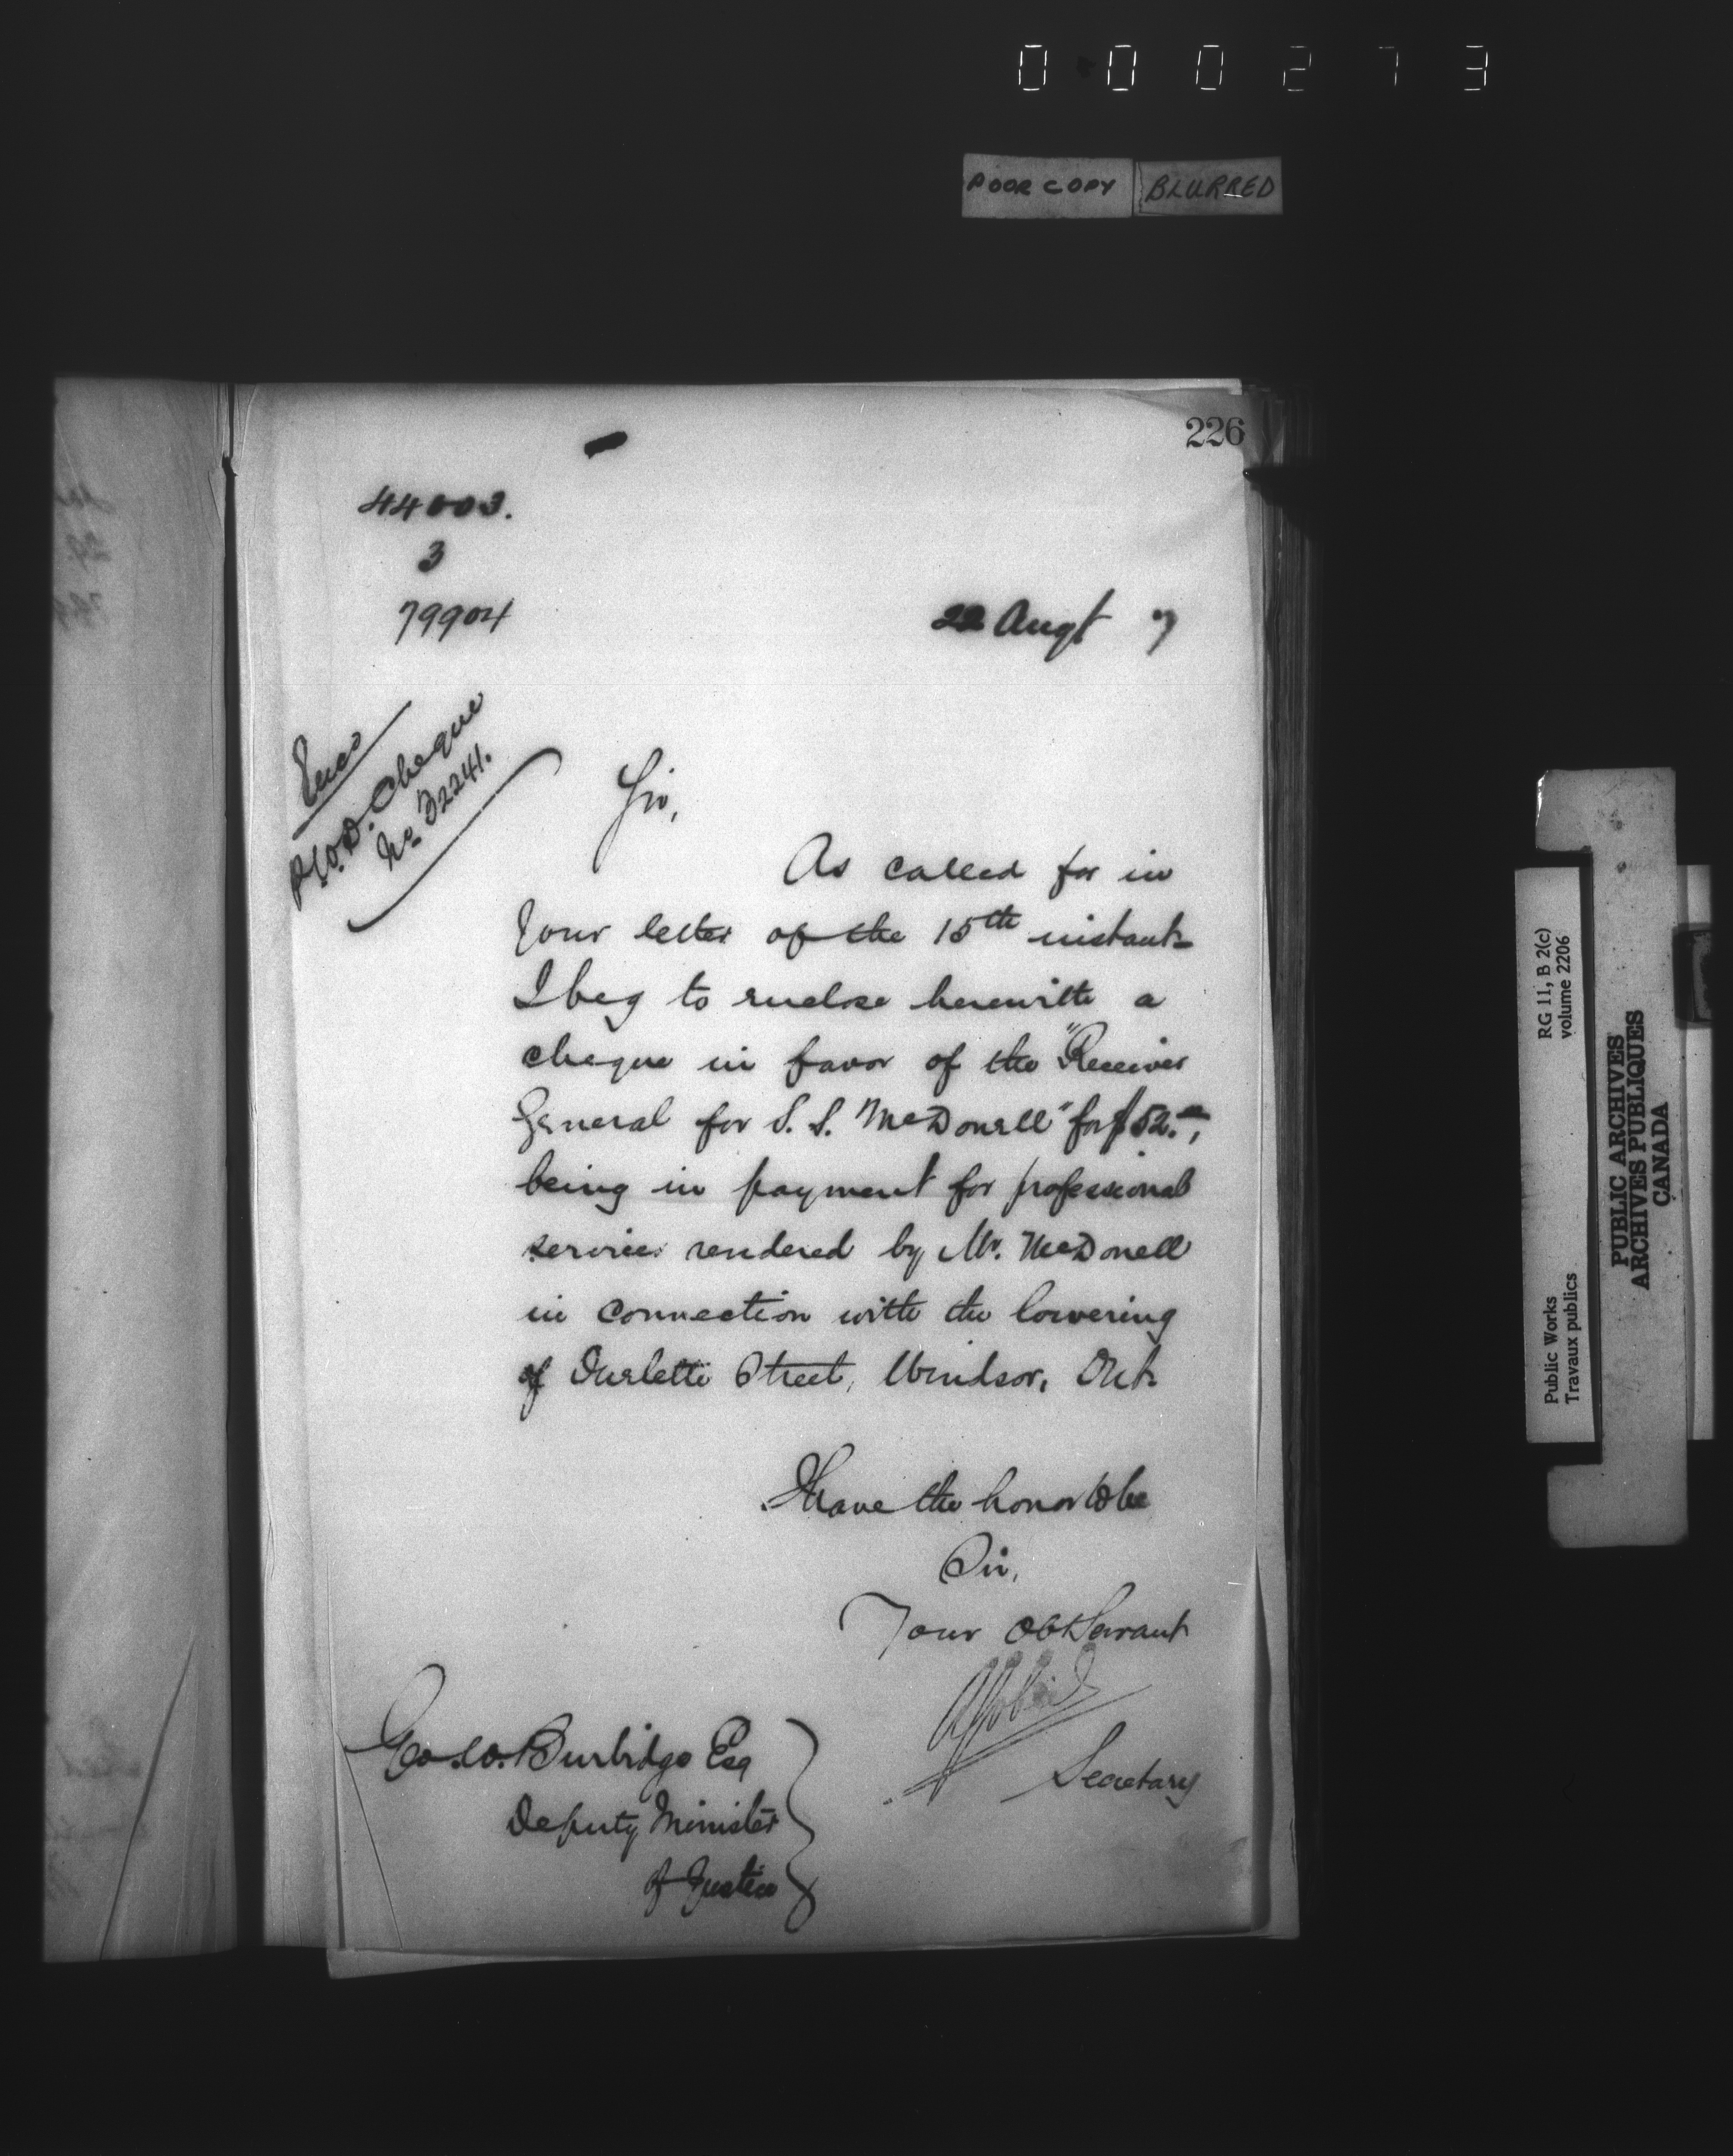 000273
POOR COPY BLURRED
226
44003.
3
79904
22 Augt 7
Encs
P.W.D. Cheque
No 32241.
Sir,
As called for in
Your letter of the 15th instant
I beg to enclose herewith a
cheque in favor of the "Receiver
General for S. S. McDonell" for $52.
being in payment for professional
services rendered by Mr. McDonell
in connection with the lowering
of Ouelette Street, Windsor, Ont.
I have the honor to be
Sir,
Your Obt Servant
Secretary
Geo. W. Burbidge Esq
Deputy Minister
of Justice
Public Works
Travaux publics
RG 11, B 2(c)
volume 2206
PUBLIC ARCHIVES
ARCHIVES PUBLIQUES
CANADA